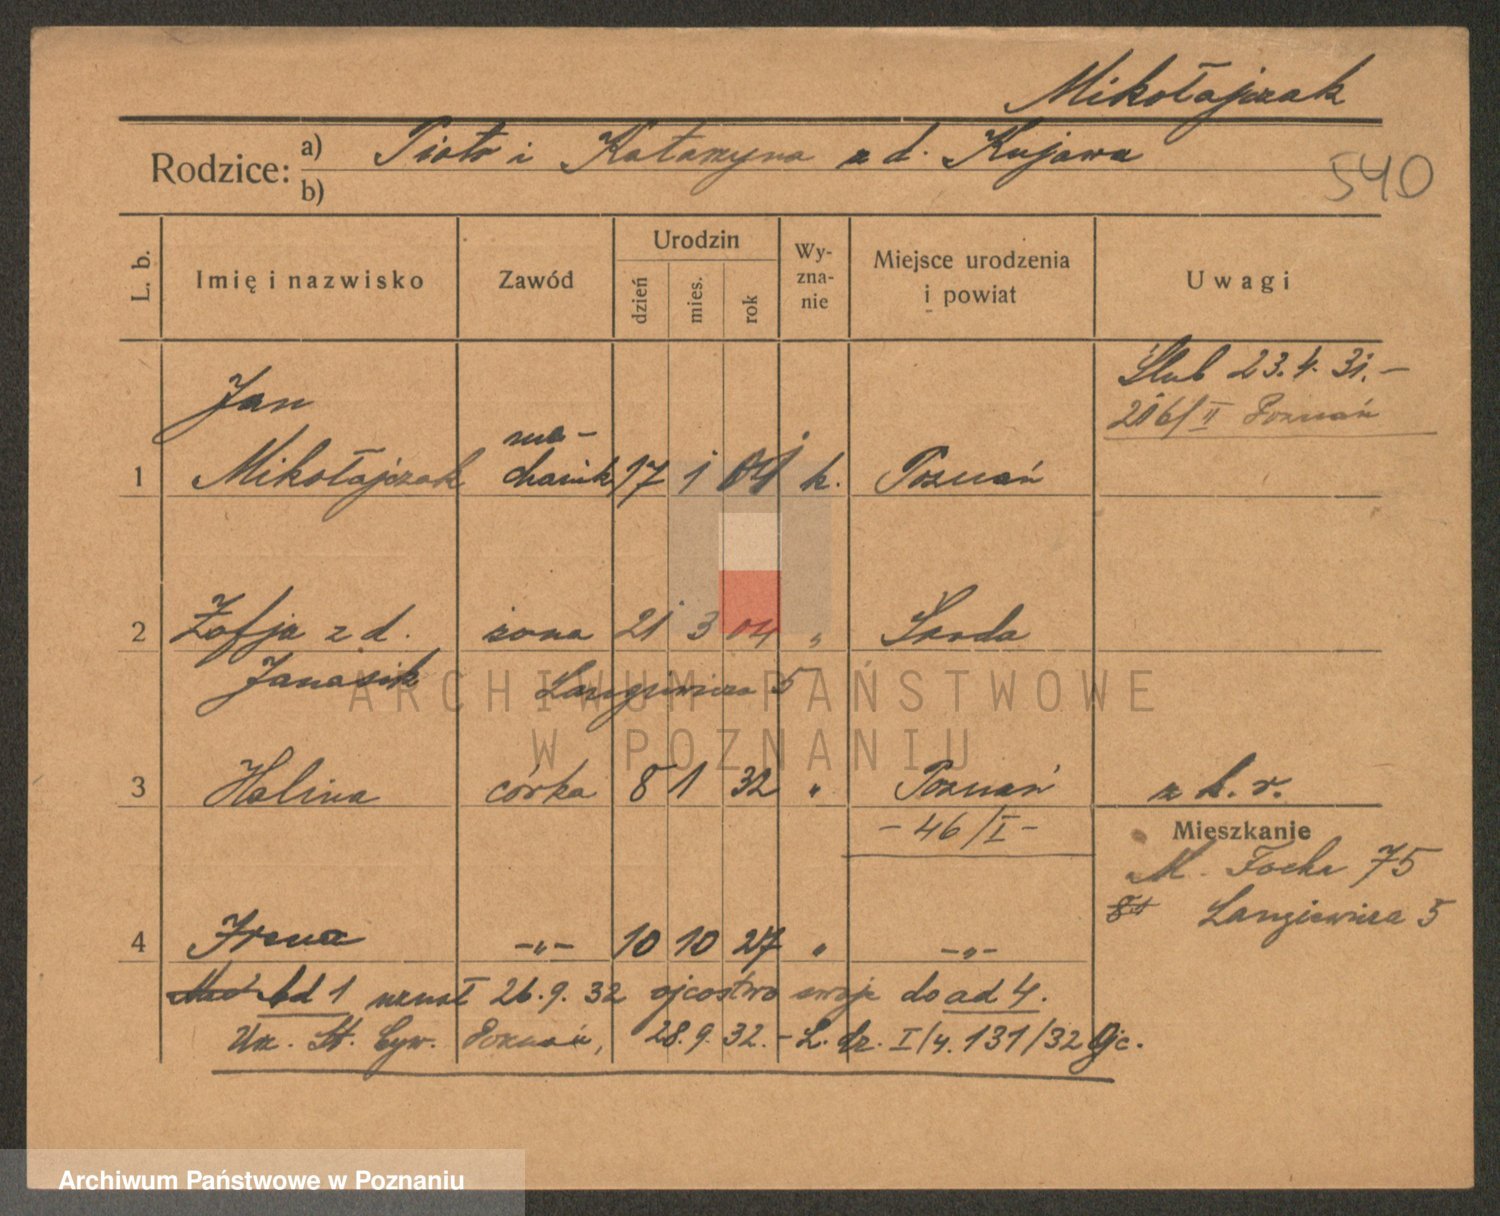 Mikołajczak
Rodzice: a) Piotr i Katarzyna z d. Kujawa
b)
540
L. b.
Imię i nazwisko
Zawód
Urodzin
dzień
mies.
rok
Wy-
zna-
nie
Miejsce urodzenia
i powiat
Uwagi
Ślub 23.4.31.-
216/II Poznań
Jan
1 Mikołajczak me-
chanik 17 1 04 k. Poznań
2 Zofja z d. żona 21 3 04 „
Janasik Langiewicza 5
3 Halina córka 8 1 32 „ Poznań z k. r.
- 46/I -
Mieszkanie
M. Focha 75
Langiewicza 5
4 Irena -„- 10 10 27 „ -„-
ad 1 uznał 26.9.32 ojcostwo swoje do ad 4.
Urz. St. Cyw. Poznań, 28.9.32.- L. dz. I/4.131/32 Ojc.
ARCHIWUM PAŃSTWOWE
W POZNANIU
Archiwum Państwowe w Poznaniu